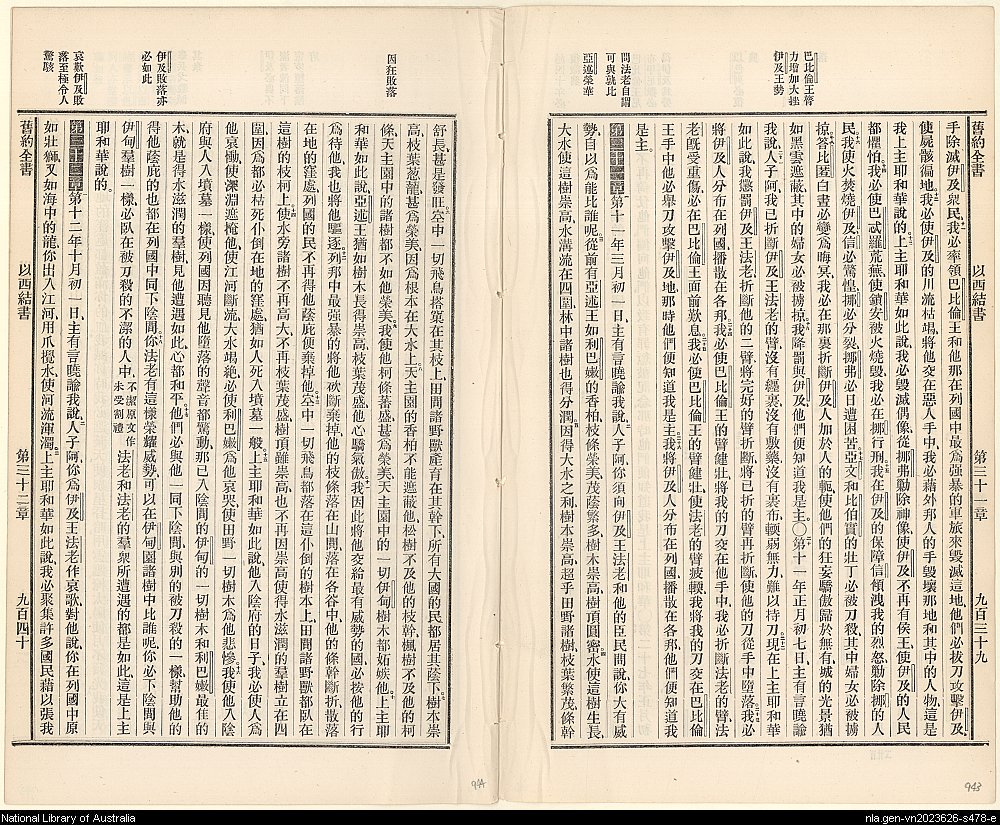 巴比倫王臂
力增加大挫
伊及王勢
問法老自謂
可與孰比
亞述榮華
舊約全書
以西結書
第三十一章
九百三十九
手除滅伊及衆民我必率領巴比倫王和他那在列國中最爲強暴的軍旅來毀滅這地他們必拔刀攻擊伊及
使屍骸徧地我必使伊及的川流枯竭將他交在惡人手中我必藉外邦人的手毀壞那地和其中的人物這是
我上主耶和華說的上主耶和華如此說我必毀滅偶像從挪弗勦除神像使伊及不再有侯王使伊及的人民
都懼怕我必使巴忒羅荒蕪使鎖安被火燒毀我必在挪行刑我在伊及的保障信傾洩我的烈忿勦除挪的人
民我使火焚燒伊及信必驚惶挪必分裂挪弗必日遭困苦亞文和比伯實的壯丁必被刀殺其中婦女必被擄
掠答比匿白晝必變爲晦冥我必在那裏折斷伊及人加於人的軛使他們的狂妄驕傲歸於無有城的光景猶
如黑雲遮蔽其中的婦女必被擄掠我降罰與伊及他們便知道我是主〇第十一年正月初七日主有言曉諭
我說人子阿我已折斷伊及王法老的臂沒有纏裹沒有敷藥沒有裹布輭弱無力難以持刀現在上主耶和華
如此說我懲罰伊及王法老折斷他的二臂將完好的臂折斷將已折的臂再折斷使他的刀從手中墮落我必
將伊及人分布在列國播散在各邦我必使巴比倫王的臂健壯將我的刀交在他手中我必折斷法老的臂法
老旣受重傷必在巴比倫王面前歎息我必使巴比倫王的臂健壯使法老的臂疲輭我將我的刀交在巴比倫
王手中他必舉刀攻擊伊及地那時他們便知道我是主我將伊及人分布在列國播散在各邦他們便知道我
是主
第三十一章第十一年三月初一日主有言曉諭我說人子阿你須向伊及王法老和他的臣民間說你大有威
勢自以爲能比誰呢從前有亞述王如利巴嫩的香柏枝條榮美茂蔭繁多樹木崇高樹頂圓密水使這樹生長
大水使這樹崇高水溝流在四圍林中諸樹也得分潤因得大水之利樹木崇高超乎田野諸樹枝葉繁茂條幹
因狂敗落
伊及敗落亦
必如此
哀歎伊及敗
落至極令人
驚駭
舒長甚是發旺空中一切飛鳥搭窠在其枝上田間諸野獸產育在其幹下所有大國的民都居其蔭下樹木崇
高枝葉葱蘢甚爲榮美因爲根本在大水上天主園的香柏不能遮蔽他松樹不及他的枝幹楓樹不及他的柯
條天主園中的諸樹都不如他榮美我使他柯條蕃盛甚爲榮美天主園中的一切伊甸樹木都妬嫉他上主耶
和華如此說亞述王猶如樹木長得崇高枝葉茂盛他心驕氣傲我因此將他交給最有威勢的國必按他的行
爲待他我也將他驅逐列邦中最强暴的將他砍斷棄掉他的枝條落在山間落在各谷中他的條幹斷折散落
在地的窪處列國的民不再得他蔭庇便棄掉他空中一切飛鳥都落在這仆倒的樹木上田間諸野獸都臥在
這樹的枝柯上使水旁諸樹不再高大不再枝葉茂盛樹頂雖崇高也不再因崇高使得水滋潤的羣樹立在四
圍因爲都必枯死仆倒在地的窪處猶如人死入墳墓一般上主耶和華如此說他入陰府的日子我必使人爲
他哀慟使深淵遮掩他使江河斷流大水竭絕必使利巴嫩爲他哀哭使田野一切樹木爲他悲慘我使他入陰
府與人入墳墓一樣使列國因聽見他墮落的聲音都驚動那已入陰間的伊甸的一切樹木和利巴嫩最佳的
木就是得水滋潤的羣樹見他遭遇如此心都和平他們必與他一同下陰間與別的被刀殺的一樣幫助他的
得他蔭庇的也都在列國中同下陰間你法老有這樣榮耀威勢可以在伊甸園諸樹中比誰呢你必下陰間與
伊甸羣樹一樣必臥在被刀殺的不潔的人中不潔原文作未受割禮法老和法老的羣衆所遭遇的都是如此這是上主
耶和華說的
第三十二章第十二年十月初一日主有言曉諭我說人子阿你爲伊及王法老作哀歌對他說你在列國中原
如壯獅又如海中的龍你出入江河用爪攪水使河流渾濁上主耶和華如此說我必聚集許多國民藉以張我
舊約全書
以西結書
第三十二章
九百四十
944
943
National Library of Australia
nla.gen-vn2023626-s478-e